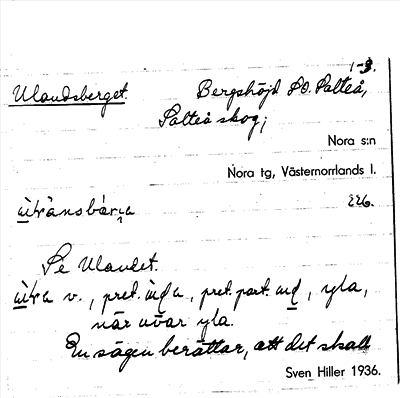 1-3.
Ulandsberget. Bergshöjd SO. Salteå,
Salteå skog;
Nora s:n
Nora tg, Västernorrlands l.
226.
Se Ulandet.
v., pret. , pret. part. , yla,
när uvar yla.
En sägen berättar, att det skall
Sven Hiller 1936.